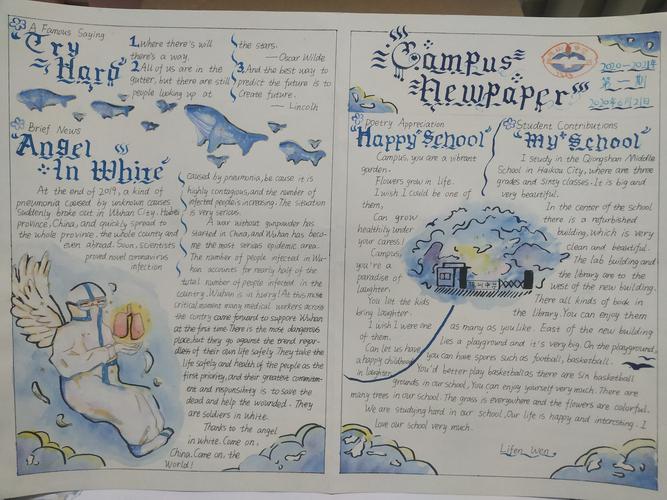 A Famous Saying
"Try
Hard"
1. Where there's will
there's a way.
2. All of us are in the
gutter, but there are still
people looking up at
the stars.
—Oscar Wilde
3. And the best way to
predict the future is to
Create future.
—Lincoln
Brief News
"Angel
In White"
At the end of 2019, a kind of
pneumonia caused by unknown causes
suddenly broke out in Wuhan City, Hubei
province, China, and quickly spread to
the whole province, the whole county and
even abroad. Soon, scientists
proved novel coronavirus
infection
caused by pneumonia, be cause it is
highly contagious, and the number of
infected people is increasing. The situation
is very serious.
A war without gunpowder has
started in China, and Wuhan has beco-
me the most serious epidemic area.
The number of people infected in Wu-
han accounts for nearly half of the
total number of people infected in the
country. Wuhan is in hurry! At this most
critical moment many medical workers across
the contry came forward to support Wuhan
at the first time. There is the most dangerous
place, but they go against the trend regar-
dless of their own life safely. They take the
life safely and health of the people as the
first priority, and their greatest commitm-
ent and responsibility is to save the
dead and help the wounded. They
are soldiers in white.
Thanks to the angel
in white. Come on,
China. Come on, the
World!
"Campus
Newpaper"
2020—2021年
第一期
2020年6月21日
Poetry Appreciation
"Happy School"
Campus, you are a vibrant
garden.
Flowers grow in life.
I wish I could be one of
them,
Can grow
healthily under
your caress!
Campus,
you're a
paradise of
laughter.
You let the kids
bring laughter.
I wish I were one
of them.
Can let us have
a happy childhood
in laughter.
Student Contributions
"My School"
I study in the Qiongshan Middle
School in Haikou City, where are three
grades and sixty classes. It is big and
very beautiful.
In the center of the school
there is a refurbished
building, which is very
clean and beautiful.
The lab building and
the library are to the
west of the new building.
There all kinds of book in
the library. You can enjoy them
as many as you like. East of the new building
lies a playground and it's very big. On the playground,
you can have spores such as football, basketball.
You'd better play basketball as there are six basketball
grounds in our school. You can enjoy yourself very much. There are
many trees in our school. The grass is everywhere and the flowers are colorful.
We are studying hard in our school, Our life is happy and interesting. I
love our school very much.
Lifen Wen